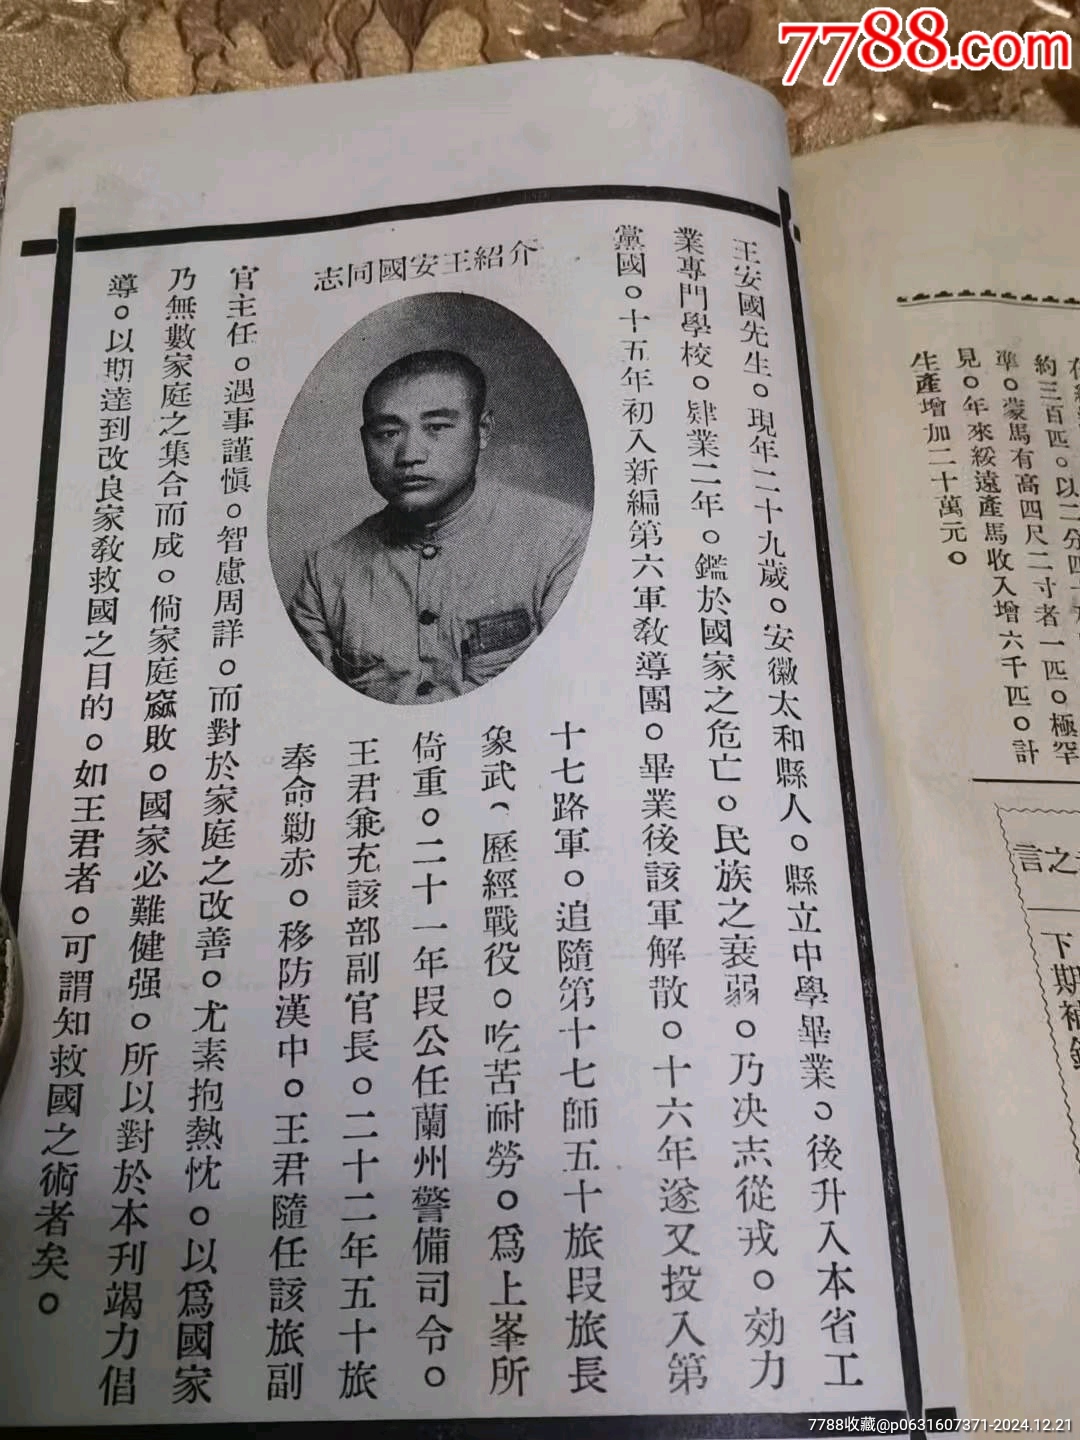 7788.com
介紹王安國同志
王安國先生。現年二十九歲。安徽太和縣人。縣立中學畢業。後升入本省工
業專門學校。肄業二年。鑑於國家之危亡。民族之衰弱。乃決志從戎。効力
黨國。十五年初入新編第六軍教導團。畢業後該軍解散。十六年遂又投入第
十七路軍。追隨第十七師五十旅段旅長
象武(歷經戰役。吃苦耐勞。爲上峯所
倚重。二十一年段公任蘭州警備司令。
王君兼充該部副官長。二十二年五十旅
奉命勦赤。移防漢中。王君隨任該旅副
官主任。遇事謹慎。智慮周詳。而對於家庭之改善。尤素抱熱忱。以爲國家
乃無數家庭之集合而成。倘家庭窳敗。國家必難健强。所以對於本刊竭力倡
導。以期達到改良家教救國之目的。如王君者。可謂知救國之術者矣。
約三百匹。以二分四
準。蒙馬有高四尺二寸者一匹。極罕
見。年來綏遠產馬收入增六千匹。計
生產增加二十萬元。
之言
下期補
7788收藏@p0631607371-2024.12.21